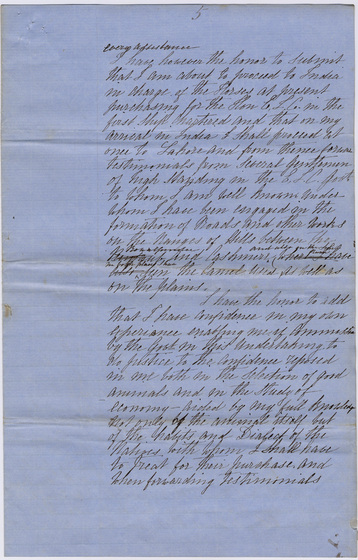 5
every assistance
I have however the honor to submit
that I am about to proceed to India
in charge of the Horses at present
purchasing for the Hon E.I.C. in the
first Ship Chartered and that on my
arrival in India I shall proceed at
once to Lahore and from thence forward
testimonials from Several Gentlemen
of high Standing in the E.I.C. Govt
to whom I am well known under
whom I have been engaged in the
formation of Roads and other works
on the Ranges of Hills between the
and Cashmere, where I have
seen the Camel used as well as
on the plains.
I have the honor to add
that I have confidence in my own
experience enabling me if
by the Govt in this Undertaking to
do justice to the confidence reposed
in me both in the Selection of good
animals and in the Study of
economy - aided by my full knowledge
not only of the animal itself but
of the Habits and Dialect of the
Natives with whom I shall have
to treat for their purchase. And
when forwarding testimonials